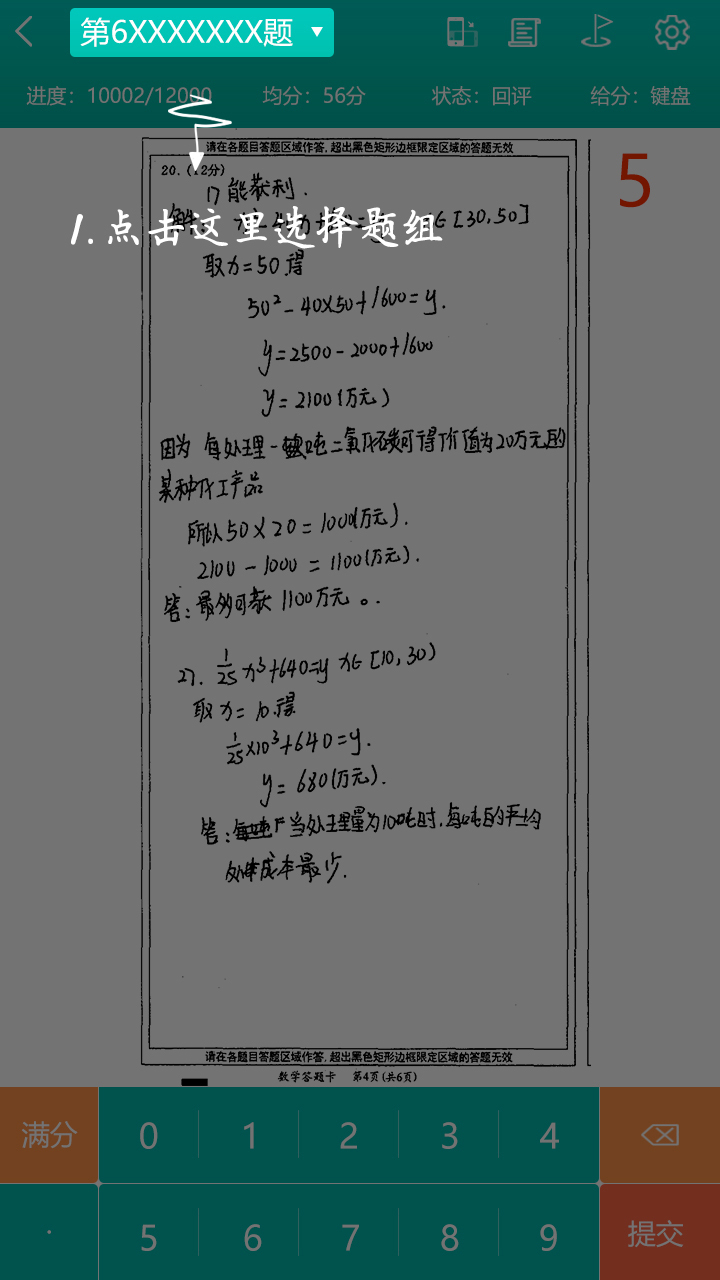 第6XXXXXXX题
进度：10002/12000 均分：56分 状态：回评 给分：键盘
请在各题目答题区域作答，超出黑色矩形边框限定区域的答题无效
5
20.（12分）
1) 能获利.
1.点击这里选择题组
∈[30,50]
取x=50得
50²-40×50+1600=y.
y=2500-2000+1600
y=2100(万元)
因为 每处理一吨二氧化碳可得价值为20万元的
某种化工产品
所以50×20=1000(万元).
2100-1000=1100(万元).
答：最多可获1100万元。.
27. 1/25 x³+640=y x∈[10,30)
取x=10得
1/25×10³+640=y.
y=680(万元).
答：当处理量为10吨时,每吨的平均
成本最少.
请在各题目答题区域作答，超出黑色矩形边框限定区域的答题无效
数学答题卡 第4页(共6页)
满分 0 1 2 3 4
. 5 6 7 8 9 提交